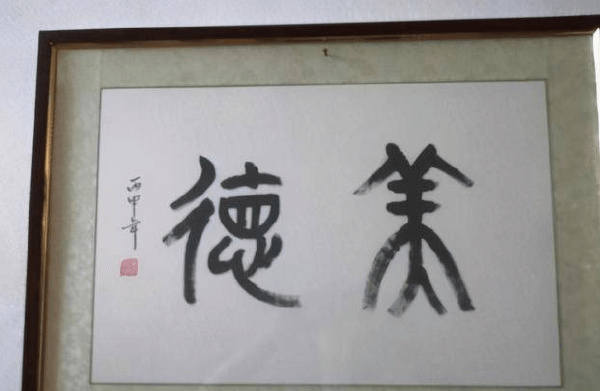 美德
丙申年